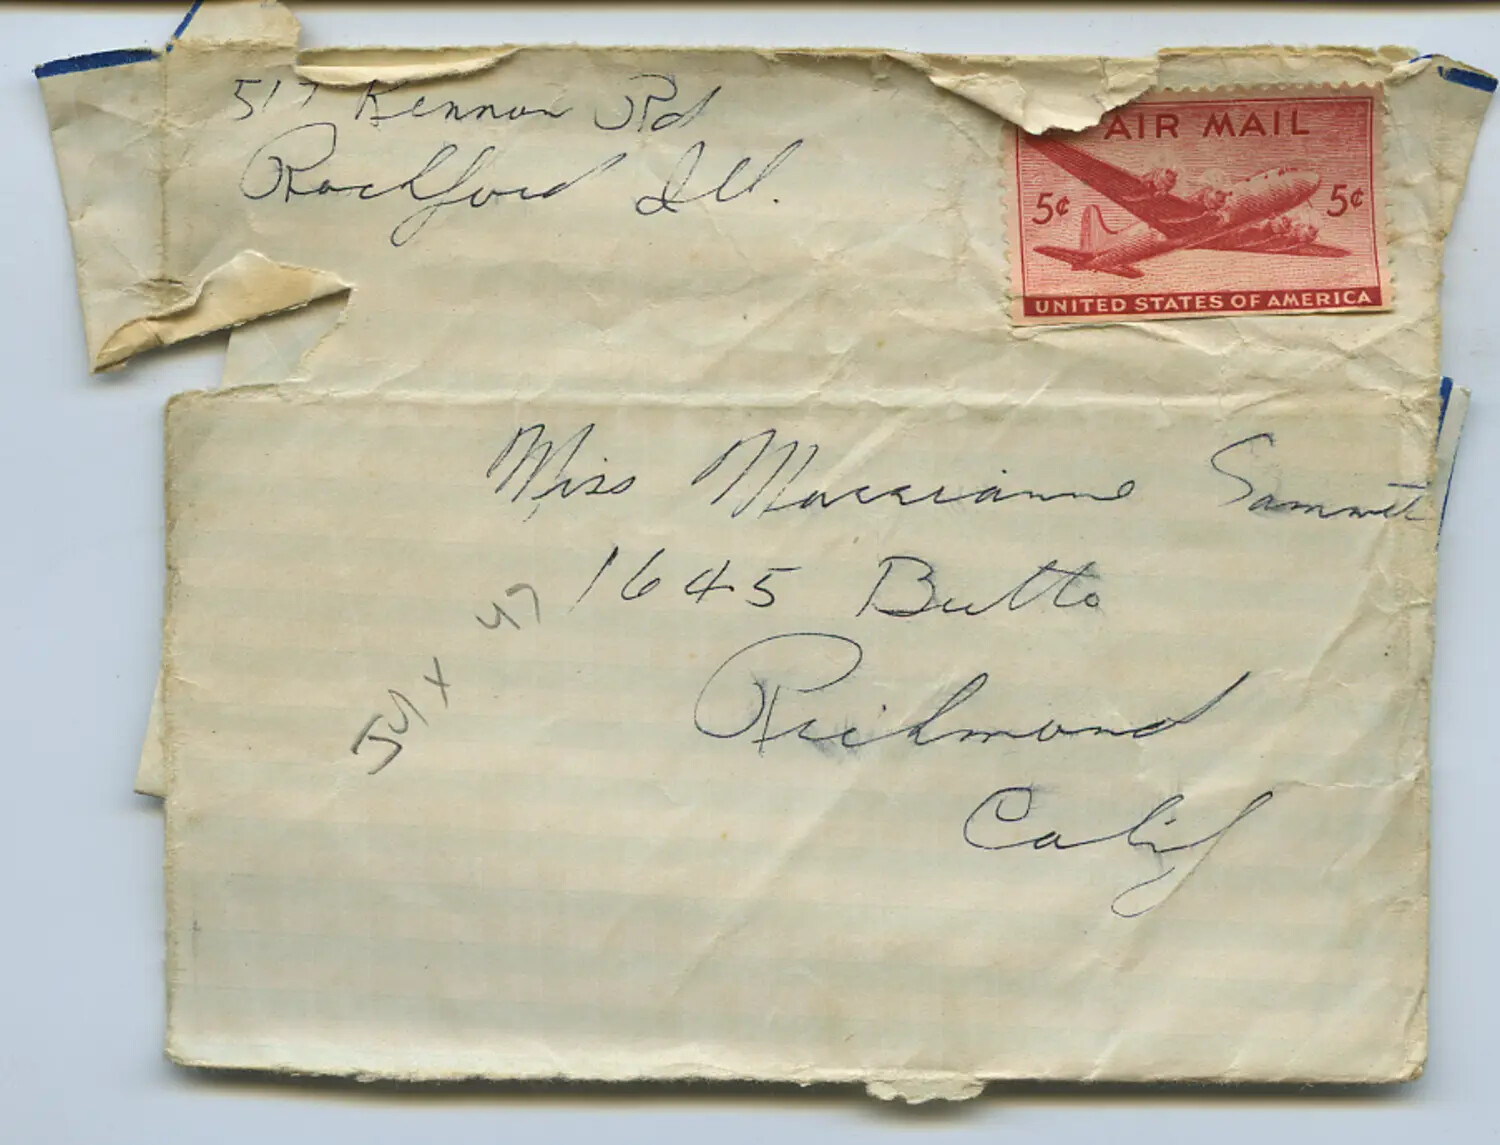 517 Kennon Rd
Rockford Ill.
AIR MAIL
5¢ 5¢
UNITED STATES OF AMERICA
Miss Marrianne
1645 Butte
Richmond
Calif
July 47